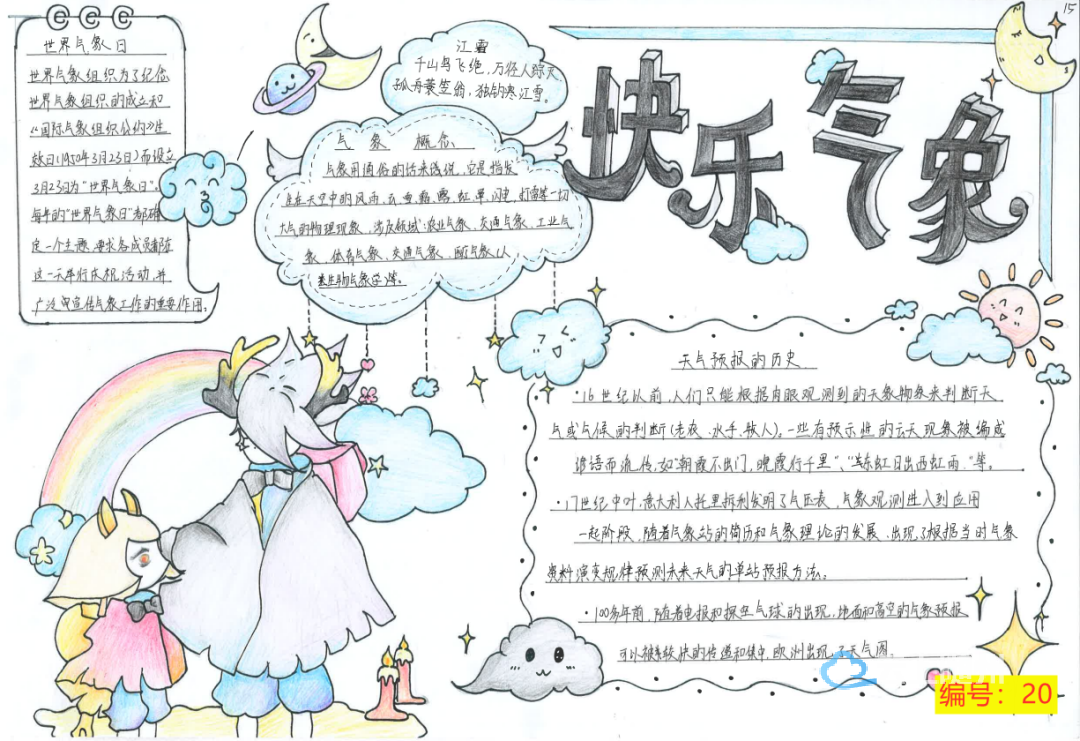 15
快乐气象
世界气象日
世界气象组织为了纪念
世界气象组织的成立和
《国际气象组织公约》生
效日(1950年3月23日)而设立
3月23日为"世界气象日"。
每年的"世界气象日"都确
定一个主题,要求各成员都在
这一天举行庆祝活动,并
广泛宣传气象工作的重要作用。
江雪
千山鸟飞绝,万径人踪灭,
孤舟蓑笠翁,独钓寒江雪。
气象概念
气象用通俗的话来说说,它是指发
生在天空中的风雨、云雪霜露、虹、晕、闪电、打雷等一切
大气的物理现象,涉及领域:农业气象、交通气象、工业气
象、体育气象、交通气象、医疗气象、以
生物气象学等。
天气预报的历史
·16世纪以前,人们只能根据肉眼观测到的天象物象来判断天
气或气候的判断(老农、水手、牧人)。一些有预示性的云天现象被编成
谚语而流传,如"朝霞不出门,晚霞行千里"、"东虹日出西虹雨"等。
·17世纪中叶,意大利人托里拆利发明了气压表,气象观测进入到应用
一起阶段,随着气象站的简历和气象理论的发展,出现了根据当时气象
资料演变规律预测未来天气的单站预报方法。
·100多年前,随着电报和探空气球的出现,地面和高空的气象预报
可以被较快的传递和集中,欧洲出现了天气图。
编号:20